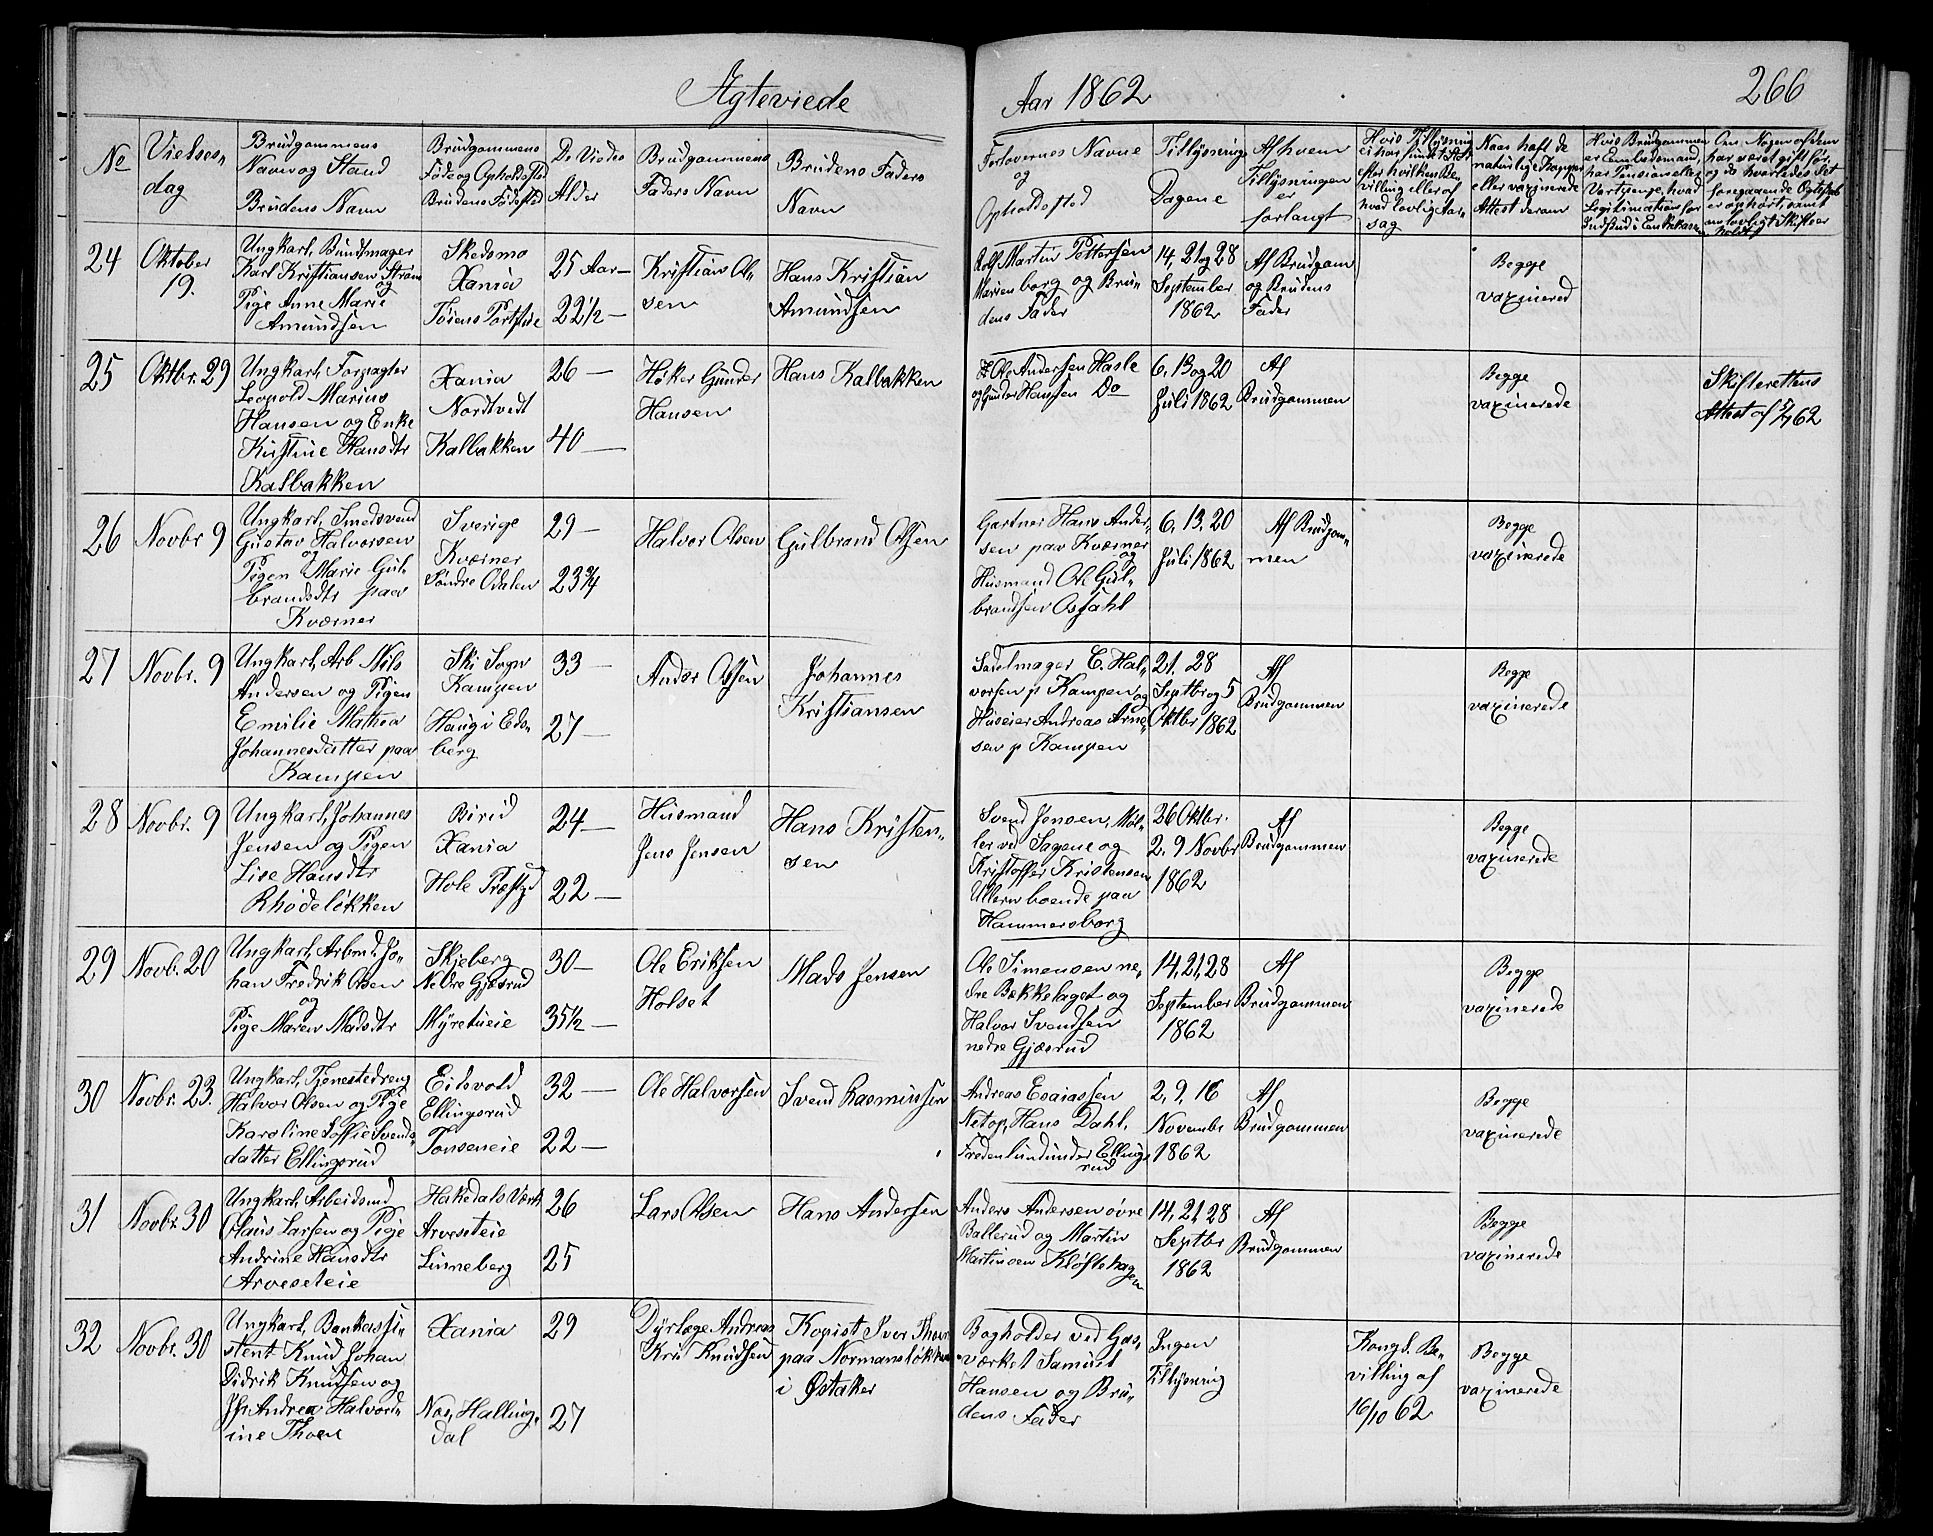 Agteviede
Aar 1862
266
No
Vielses-
dag
Brudgommens
Navn og Stand
Brudens Navn
Brudgommens
Føde og Opholdssted
Brudens Fødested
De Viedes
Alder
Brudgommens
Faders Navn
Brudens Faders
Navn
Forlovernes Navne
og
Opholdssted
Tillysnings
Dagene
Af hvem
Tillysningen
er
forlangt
Hvis Tillysning
ei har fundet Sted
efter hvilken Be-
villing eller af
hvad lovlig Aar-
sag
Naar haft de
naturlige Kopper
eller vaxinerede
Attest derom
Hvis Brudgommen
er Embedsmand,
har Pension eller
Vartpenge, hvad
Legitimation for
Indskud i Enkekassen
Om Nogen af dem
har været gift før,
og da hvorledes det
foregaaende Ægteskab
er ophørt, samt
om lovligt Skifte er
holdt
24
Oktober
19.
Ungkarl, Bundtmager
Karl Kristiansen Strøm
og
Pige Anne Marie
Amundsen
Skedsmo
Xania
Tøiens Portstue
25 Aar —
22 1/2 —
Kristian Ol-
sen
Hans Kristian
Amundsen
Rolf Martin Pettersen
Marienborg og Bru-
dens Fader
14, 21 og 28
September
1862
Af Brudgom
og Brudens
Fader
Begge
vaxinered
25
Oktbr. 29
Ungkarl, Forpagter
Leopold Marius
Hansen og Enke
Kristine Hansdtr
Kalbakken
Xania
Nordtvedt
Kalbakken
26 —
40 —
Høker Gunder
Hansen
Hans Kalbakken
Ole Andersen Hasle
og Gunder Hansen Do
6, 13 og 20
Juli 1862
Af
Brudgommen
Begge
vaxinerede
Skifterettens
Attest af 5/7 62
26
Novbr 9
Ungkarl, Smedsvend
Gustav Halvorsen
og
Pigen Marie Gul-
brandsdtr paa
Kværner
Sverige
Kværner
Søndre Odalen
29 —
23 3/4
Halvor Olsen
Gulbrand Olsen
Gartner Hans Ander-
sen paa Kværner
og
Husmand Ole Gul-
brandsen Osdahl
6, 13, 20
Juli 1862
Af Brudgom-
men
Begge
vaxinerede
27
Novbr. 9
Ungkarl, Arb Nils
Andersen og Pigen
Emilie Mathea
Johannesdatter paa
Kampen
Ski Sogn
Kampen
Haug i Eds-
berg
33 —
27 —
Anders Olsen
Johannes
Kristiansen
Sadelmager C. Hal-
vorsen p Kampen og
Huseier Andreas Arne-
sen p Kampen
21, 28
Septbr og 5
Oktbr 1862
Af
Brudgommen
Begge
vaxinerede
28
Novbr. 9
Ungkarl, Johannes
Jensen og Pigen
Lise Hansdtr
Rhodeløkken
Birid
Xania
Hole Præstgd
24 —
22 —
Husmand
Jens Jensen
Hans Kristen-
sen
Svend Jensen, Møl-
ler ved Sagene og
Kristoffer Kristensen
Ullern boende paa
Hammersborg
26 Oktbr.
2, 9 Novbr
1862
Af
Brudgommen
Begge
vaxinerede
29
Novb. 20
Ungkarl, Arbmd. Jo-
han Fredrik Olsen
og
Pige Maren Madsdtr
Skjeberg
Nedre Gjæsrud
Myretueie
30 —
35 1/2 —
Ole Eriksen
Holset
Mads Jensen
Ole Simensen ne-
dre Bækkelaget og
Halvor Svendsen
nedre Gjæsrud
14, 21, 28
September
1862
Af
Brudgommen
Begge
vaxinerede
30
Novbr. 23.
Ungkarl, Tjenestedreng
Halvor Olsen og Pige
Karoline Soffie Svends-
datter Ellingsrud
Eidsvold
Ellingsrud
Tonseneie
32 —
22 —
Ole Halvorsen
Svend Rasmussen
Andreas Esaiassen
Netop, Hans Dahl,
Fredenlund under Ellings-
rud
2, 9, 16
Novembr
1862
Af
Brudgommen
Begge
vaxinerede
31
Novbr. 30
Ungkarl, Arbeidsmd
Claus Larsen og Pige
Andrine Hansdtr
Arveseteie
Hakedals Værk
Arveseteie
Linneberg
26
25
Lars Olsen
Hans Andersen
Anders Andersen øvre
Ballerud og Martin
Martinsen Kløftehagen
14, 21, 28
Septbr
1862
Af
Brudgommen
Begge
vaxinerede
32
Novbr. 30
Ungkarl, Bankassi-
stent Knud Johan
Didrik Knudsen og
Jfr Andrea Halvord-
ine Thoen
Xania
Næs, Halling-
dal
29
27
Dyrlæge Andreas
Kris Knudsen
Kopist Iver Thoen
paa Normansløkken
i Østaker
Bogholder ved Gas-
værket Samuel
Hansen og Bru-
dens Fader
Ingen
Tillysning
Kongl. Be-
villing af
16/10 62
Begge
vaxinerede